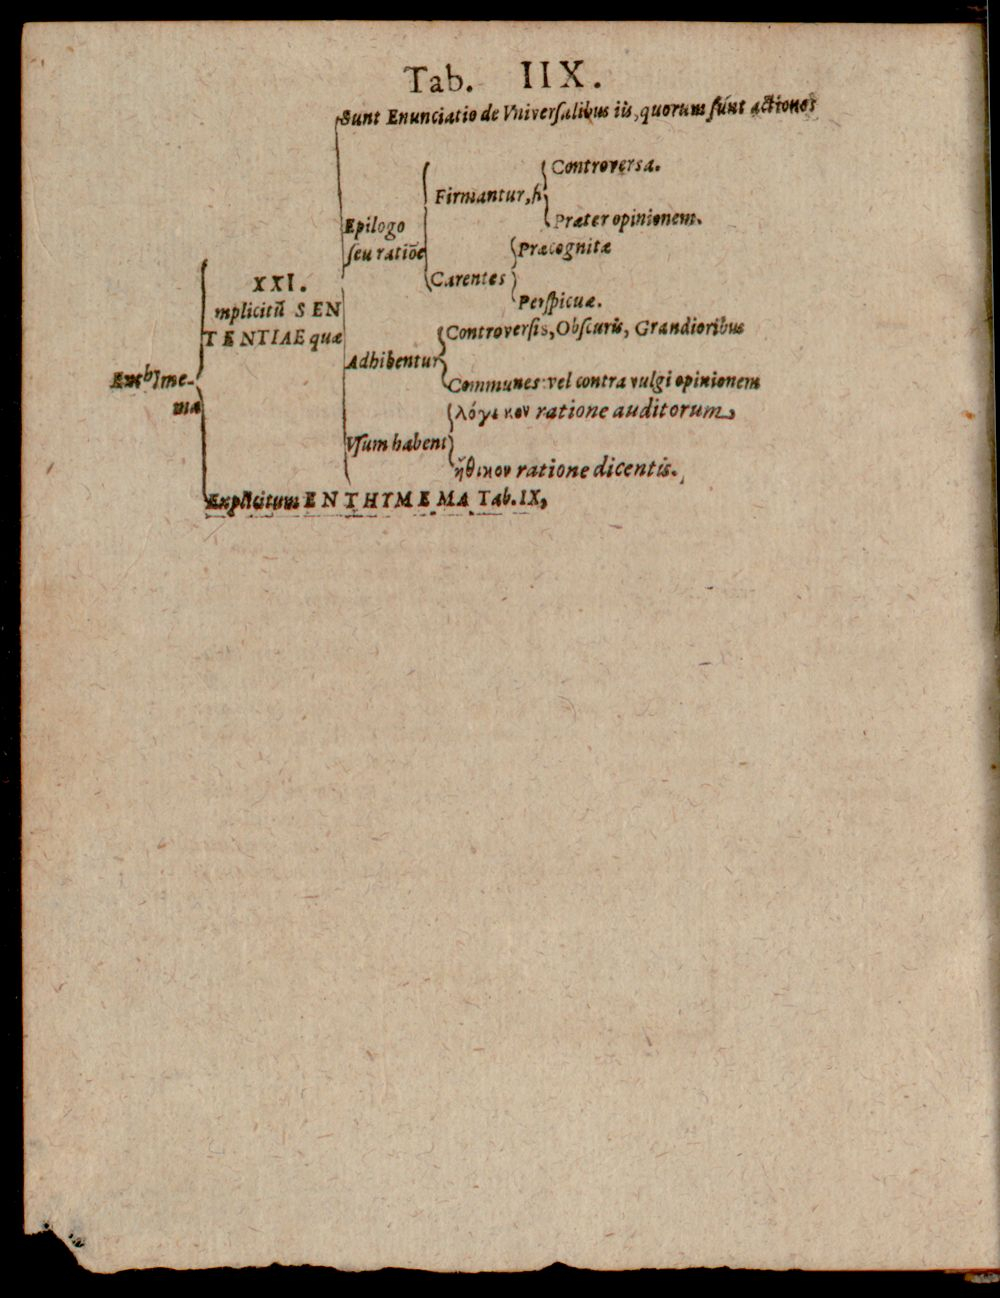 Tab. IIX.
Sunt Enunciatio de Vniversalibus iis, quorum sunt actiones
Controversa.
Firmantur, si
Præter opinionem.
Epilogo
seu ratiōe
Præcognitæ
Carentes
Perspicuæ.
XXI.
mplicitū SEN
TENTIAE quæ
Controversis, Obscuris, Grandioribus
Adhibentur
Enthyme-
Communes vel contra vulgi opinionem
ma
λόγικον ratione auditorum,
Vsum habent
ἤθικον ratione dicentis.
Explicitum ENTHYMEMA Tab. IX,